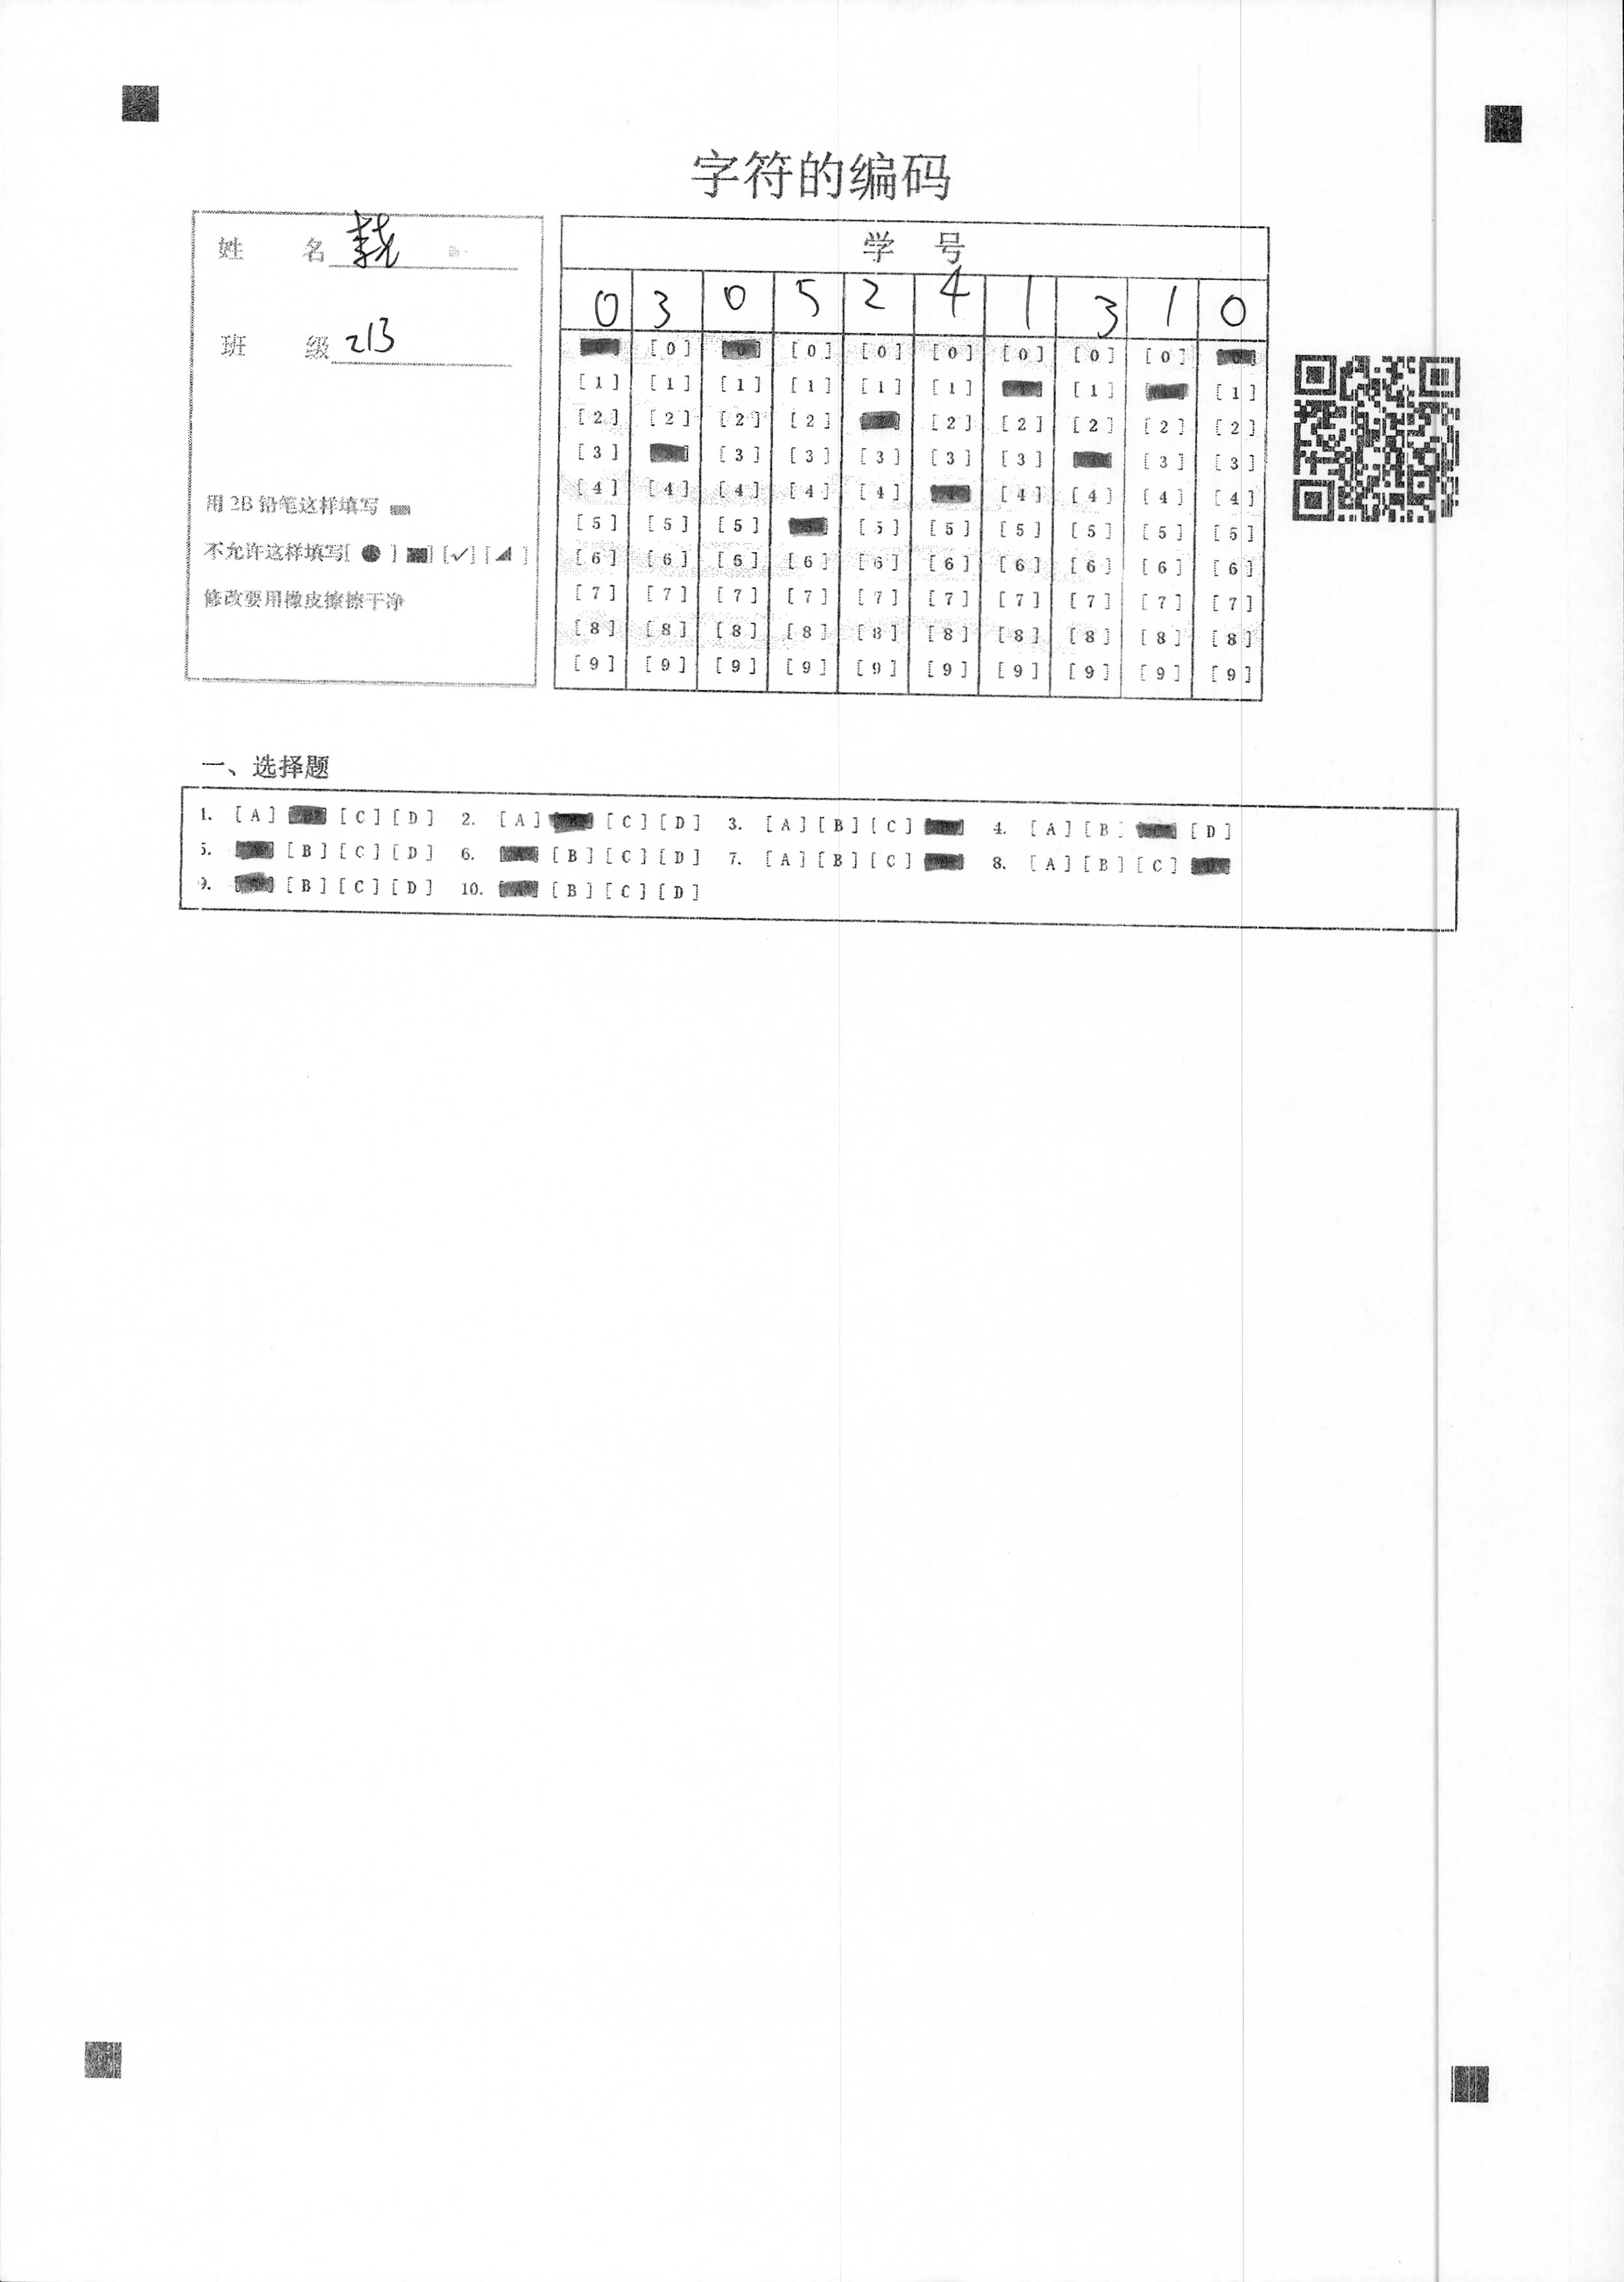 字符的编码
姓 名
班 级 213
用 2B 铅笔这样填写
不允许这样填写[ ● ] [■] [✓] [◢ ]
修改要用橡皮擦擦干净
学 号
0 3 0 5 2 4 1 3 1 0
[0] [0] [0] [0] [0] [0] [0] [0]
[1] [1] [1] [1] [1] [1] [1] [1]
[2] [2] [2] [2] [2] [2] [2] [2] [2]
[3] [3] [3] [3] [3] [3] [3] [3]
[4] [4] [4] [4] [4] [4] [4] [4] [4]
[5] [5] [5] [5] [5] [5] [5] [5] [5]
[6] [6] [6] [6] [6] [6] [6] [6] [6] [6]
[7] [7] [7] [7] [7] [7] [7] [7] [7] [7]
[8] [8] [8] [8] [8] [8] [8] [8] [8] [8]
[9] [9] [9] [9] [9] [9] [9] [9] [9] [9]
一、选择题
1. [A] [C] [D] 2. [A] [C] [D] 3. [A] [B] [C] 4. [A] [B] [D]
5. [B] [C] [D] 6. [B] [C] [D] 7. [A] [B] [C] 8. [A] [B] [C]
9. [B] [C] [D] 10. [B] [C] [D]